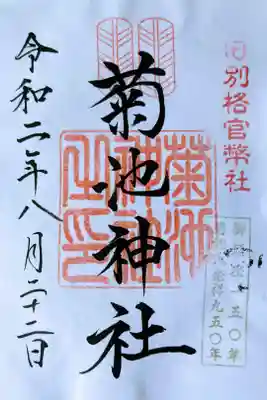 旧別格官幣社
御鎮座一五〇年
九五〇年
菊池神社
菊池
神社
之印
令和二年八月二十二日